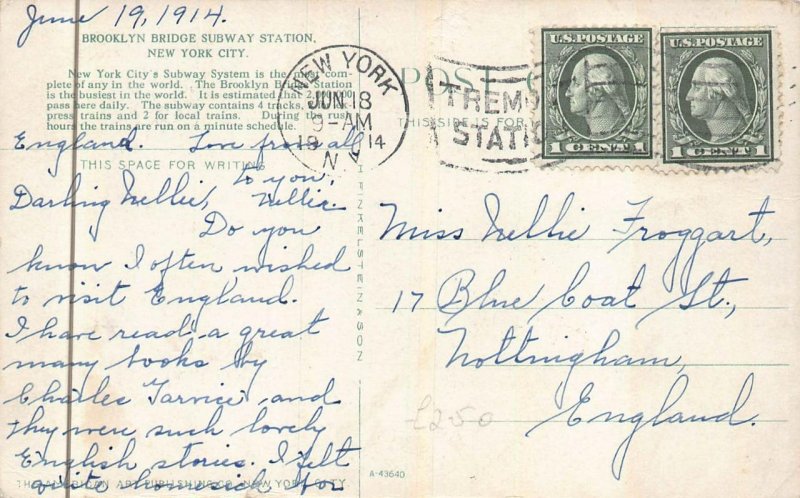 June 19, 1914.
BROOKLYN BRIDGE SUBWAY STATION,
NEW YORK CITY.
New York City's Subway System is the most com-
plete of any in the world. The Brooklyn Bridge Station
is the busiest in the world. It is estimated that
pass here daily. The subway contains 4 tracks,
press trains and 2 for local trains. During the rush
hours the trains are run on a minute schedule.
England. Love from all
THIS SPACE FOR WRITING
to you,
Nellie.
Darling Nellie,
Do you
know I often wished
to visit England.
I have read a great
many books by
Charles Garvice, and
they were such lovely
English stories. I felt
quite homesick for
THE AMERICAN ART PUBLISHING CO., NEW YORK CITY
H FINKELSTEIN & SON
A-43640
NEW YORK
JUN 18
9-AM
19 14
N Y
POST
THIS SIDE IS FOR
TREMO
STATI
U.S. POSTAGE
1 CENT 1
U.S. POSTAGE
1 CENT 1
Miss Nellie Froggart,
17 Blue Coat St.,
Nottingham,
England.
£250